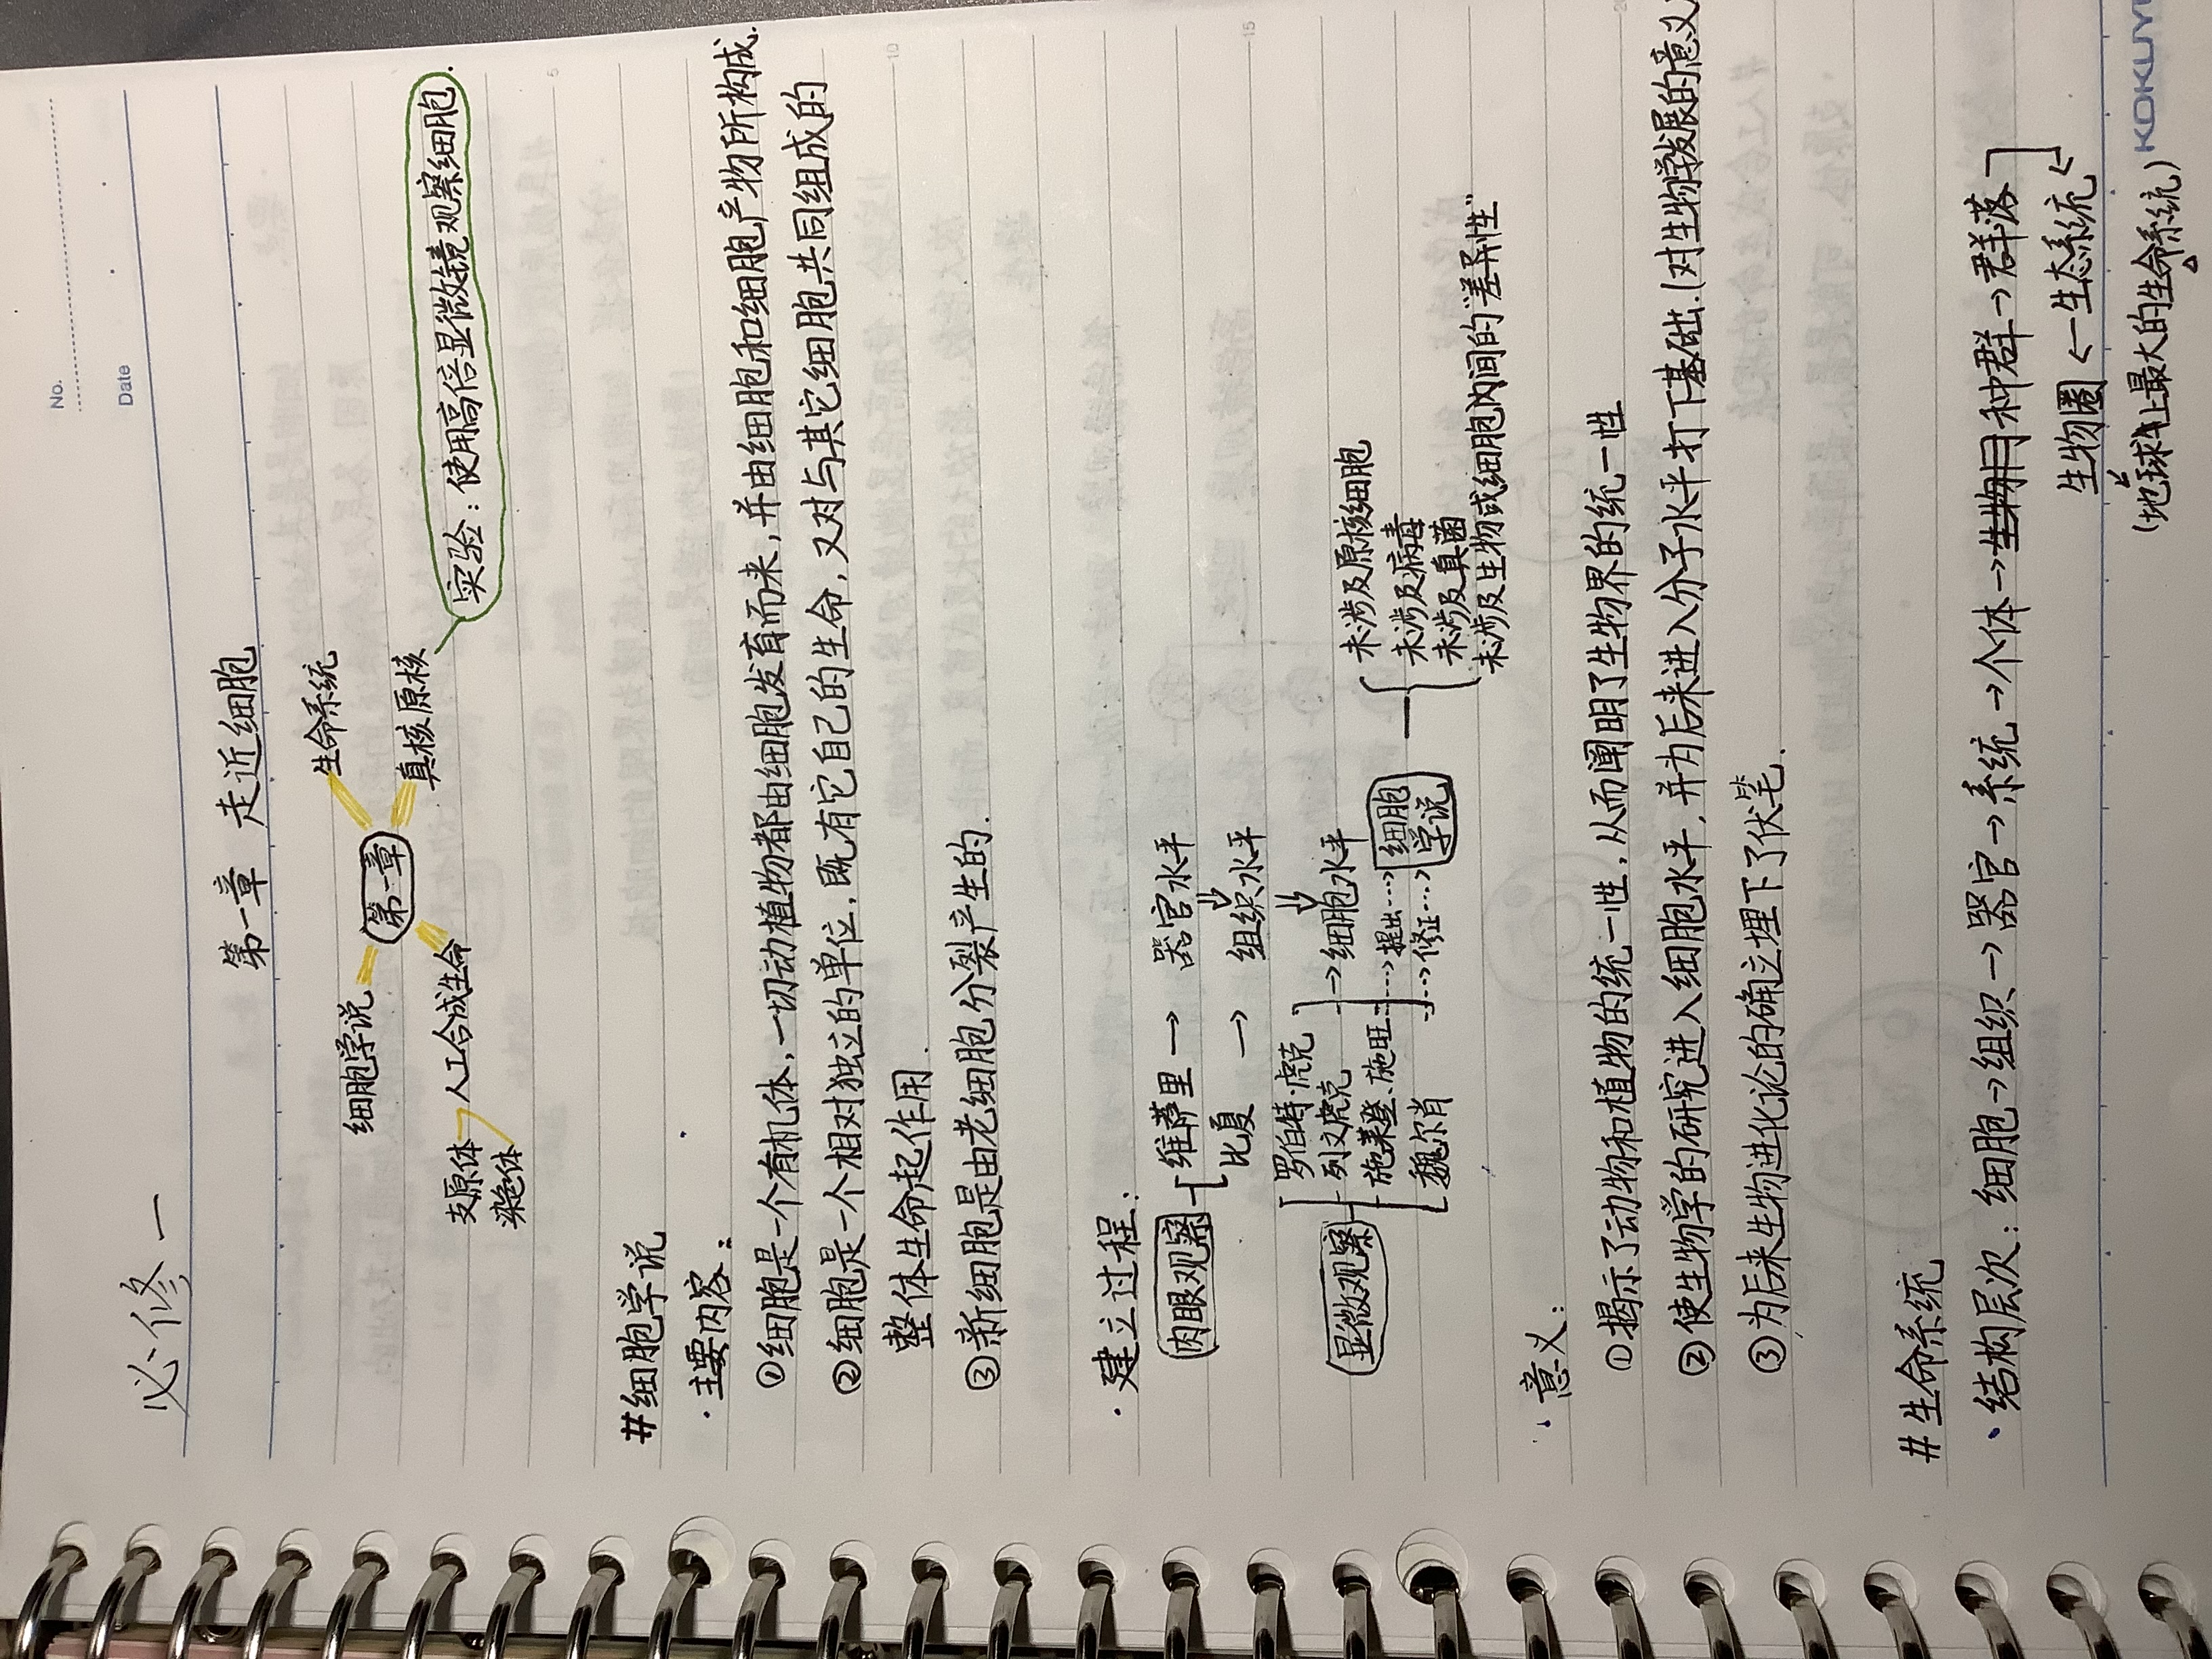 No.
Date
必修一
第一章 走近细胞
细胞学说
生命系统
第一章
真核原核
人工合成生命
支原体
染色体
实验：使用高倍显微镜观察细胞.
5
#细胞学说
·主要内容：
①细胞是一个有机体,一切动植物都由细胞发育而来,并由细胞和细胞产物所构成.
②细胞是一个相对独立的单位,既有它自己的生命,又对与其它细胞共同组成的
整体生命起作用.
10
③新细胞是由老细胞分裂产生的.
·建立过程：
肉眼观察
维萨里 → 器官水平
比夏 → 组织水平
15
显微观察
罗伯特·虎克
列文虎克
→细胞水平
施莱登、施旺 提出
魏尔肖 修正
细胞
学说
未涉及原核细胞
未涉及病毒
未涉及真菌
未涉及生物或细胞内间的"差异性"
·意义：
①揭示了动物和植物的统一性,从而阐明了生物界的统一性
②使生物学的研究进入细胞水平,并为后来进入分子水平打下基础.(对生物学发展的意义
20
③为后来生物进化论的确立埋下了伏笔.
#生命系统
·结构层次：细胞→组织→器官→系统→个体→种群→群落
生物圈←生态系统←
(地球上最大的生命系统)
KOKUYO